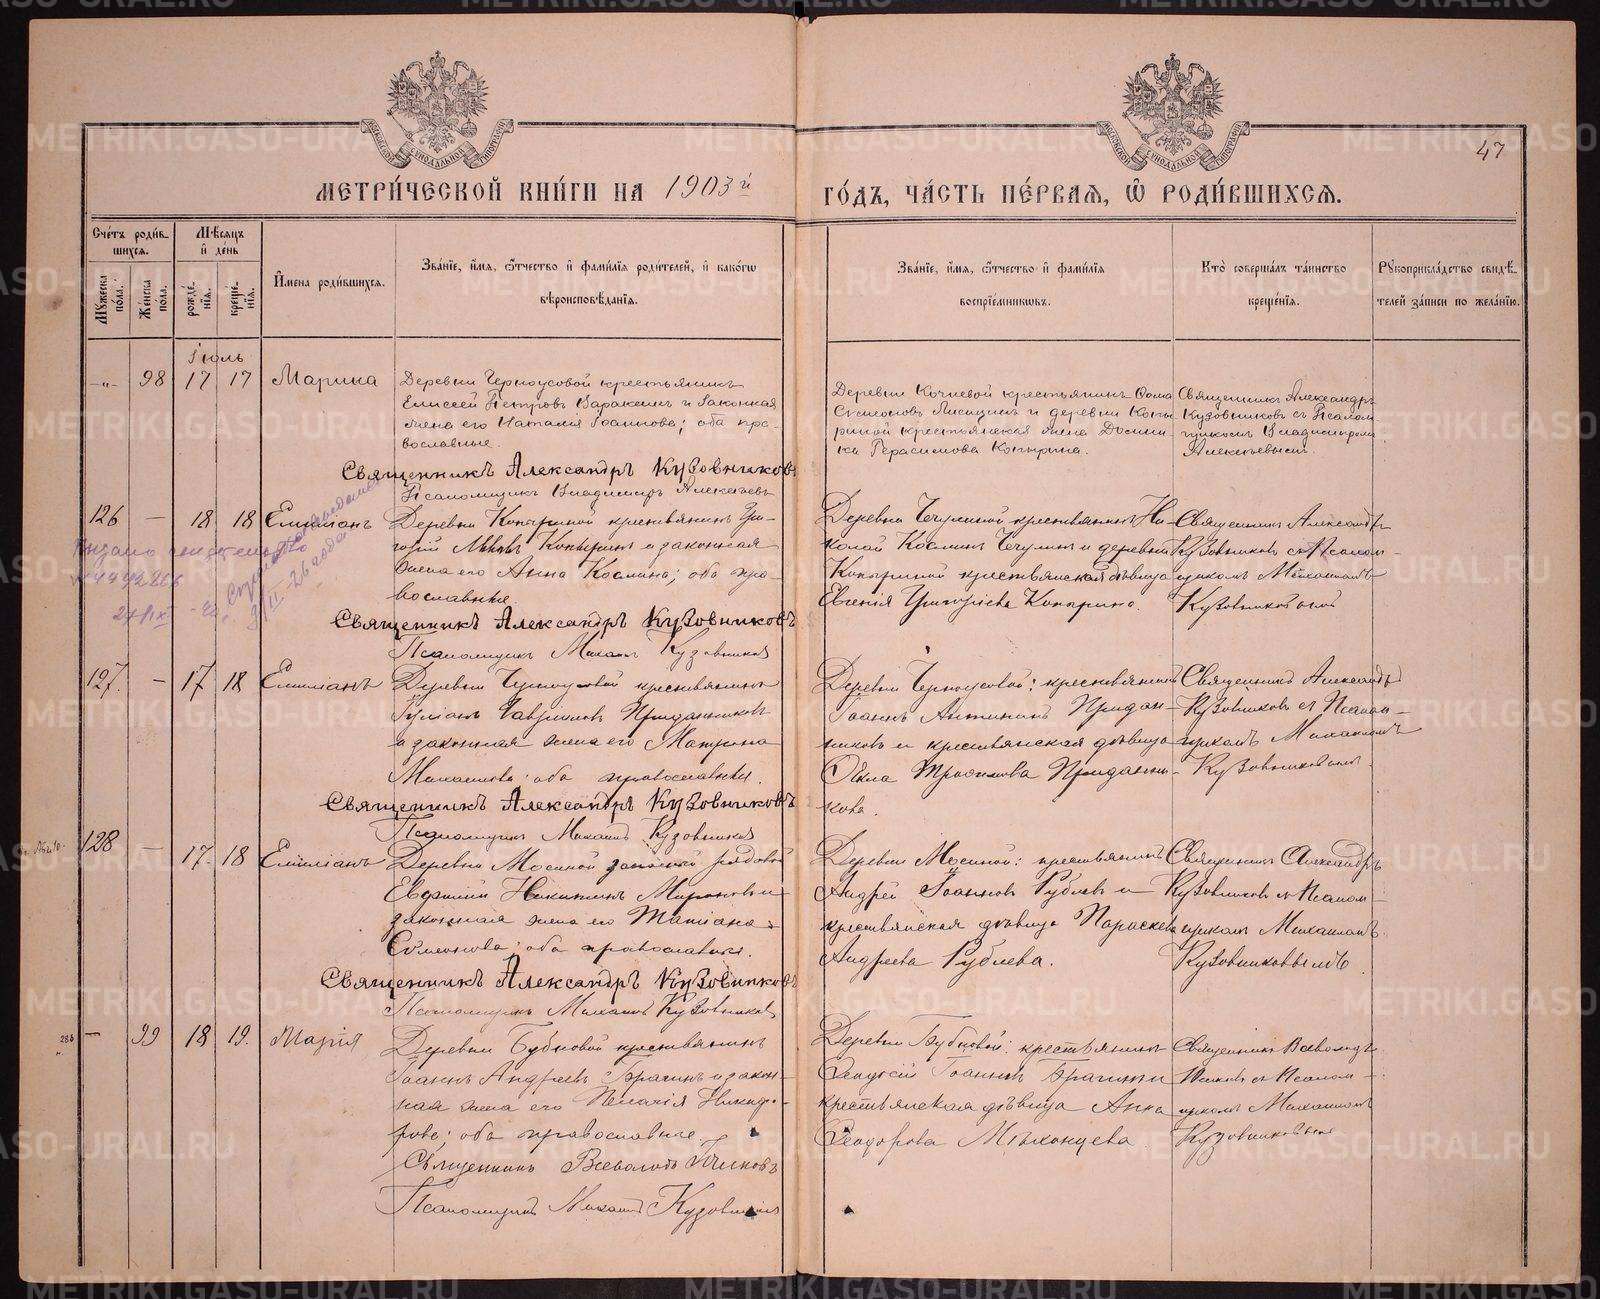 47
МЕТРИ́ЧЕСКОЙ КНИ́ГИ НА 1903й ГО́ДЪ, ЧА́СТЬ ПЕ́РВАЯ, Ѡ РОДИ́ВШИХСЯ.
Сче́тъ роди́вшихся.
Му́жеска по́ла.
Же́нска по́ла.
Мѣ́сяцъ и де́нь
рожде́нія.
креще́нія.
И́мена роди́вшихся.
Зва́ніе, и́мя, ѻ́тчество и фами́лія роди́телей, и како́гѡ
вѣроисповѣ́данія.
Зва́ніе, и́мя, ѻ́тчество и фами́лія
воспріе́мникѡвъ.
Кто̀ соверша́лъ та́инство
креще́нія.
Рꙋкоприкла́дство свидѣ́-
телей за́писи по жела́нію.
Іюль
98 17 17 Марина
Деревни Черноусовой крестьянинъ
Елисей Петровъ Варакинъ и законная
жена его Наталія Іоаннова; оба пра-
вославные.
Священникъ Александръ Кузовниковъ
Псаломщикъ Владимиръ Алексѣевъ
Деревни Кочневой крестьянинъ Ѳома
Симеоновъ Лисицинъ и деревни Копы
риной крестьянская жена Домни-
ка Герасимова Копырина.
Священникъ Александръ
Кузовниковъ съ Псалом
щикомъ Владимиромъ
Алексѣевымъ
126 — 18 18 Емиліанъ
Деревни Копыриной крестьянинъ Гри-
горій Копыринъ и законная
жена его Анна Космина; оба пра-
вославные.
Священникъ Александръ Кузовниковъ
Псаломщикъ Михаилъ Кузовниковъ
Деревни Чечулиной крестьянинъ Ни-
колай Косминъ Чечулинъ и деревни
Копыриной крестьянская дѣвица
Евгенія Григоріева Копырина.
Священникъ Александръ
Кузовниковъ съ Псалом-
щикомъ Михаиломъ
Кузовниковымъ
127. — 17 18 Емиліанъ
Деревни Черноусовой крестьянинъ
Гавріиловъ Приданниковъ
и законная жена его Матрона
Михаилова; оба православные.
Священникъ Александръ Кузовниковъ
Псаломщикъ Михаилъ Кузовниковъ
Деревни Черноусовой: крестьянинъ
Іоаннъ Антининъ Придан-
никовъ и крестьянская дѣвица
Ѳекла Трофимова Приданни-
кова.
Священникъ Александръ
Кузовниковъ съ Псалом-
щикомъ Михаиломъ
Кузовниковымъ.
128 — 17. 18 Емиліанъ
Деревни Мосиной запасной рядовой
Евфимій Никитинъ Мироновъ и
законная жена его Татіана
Симеонова; оба православные.
Священникъ Александръ Кузовниковъ
Псаломщикъ Михаилъ Кузовниковъ
Деревни Мосиной: крестьянинъ
Андрей Іоанновъ Рублевъ и
крестьянская дѣвица Параскева
Андреева Рублева.
Священникъ Александръ
Кузовниковъ съ Псалом-
щикомъ Михаиломъ
Кузовниковымъ
— 99 18 19. Марія
Деревни Бубновой крестьянинъ
Іоаннъ Андреевъ Брагинъ и закон-
ная жена его Пелагія Никифо-
рова; оба православные.
Священникъ Всеволодъ
Псаломщикъ Михаилъ Кузовниковъ
Деревни Бубновой: крестьянинъ
Іоанновъ Брагинъ и
крестьянская дѣвица Анна
Ѳеодорова Мѣхонцева
Священникъ Всеволодъ
съ Псалом-
щикомъ Михаиломъ
Кузовниковымъ
METRIKI.GASO-URAL.RU